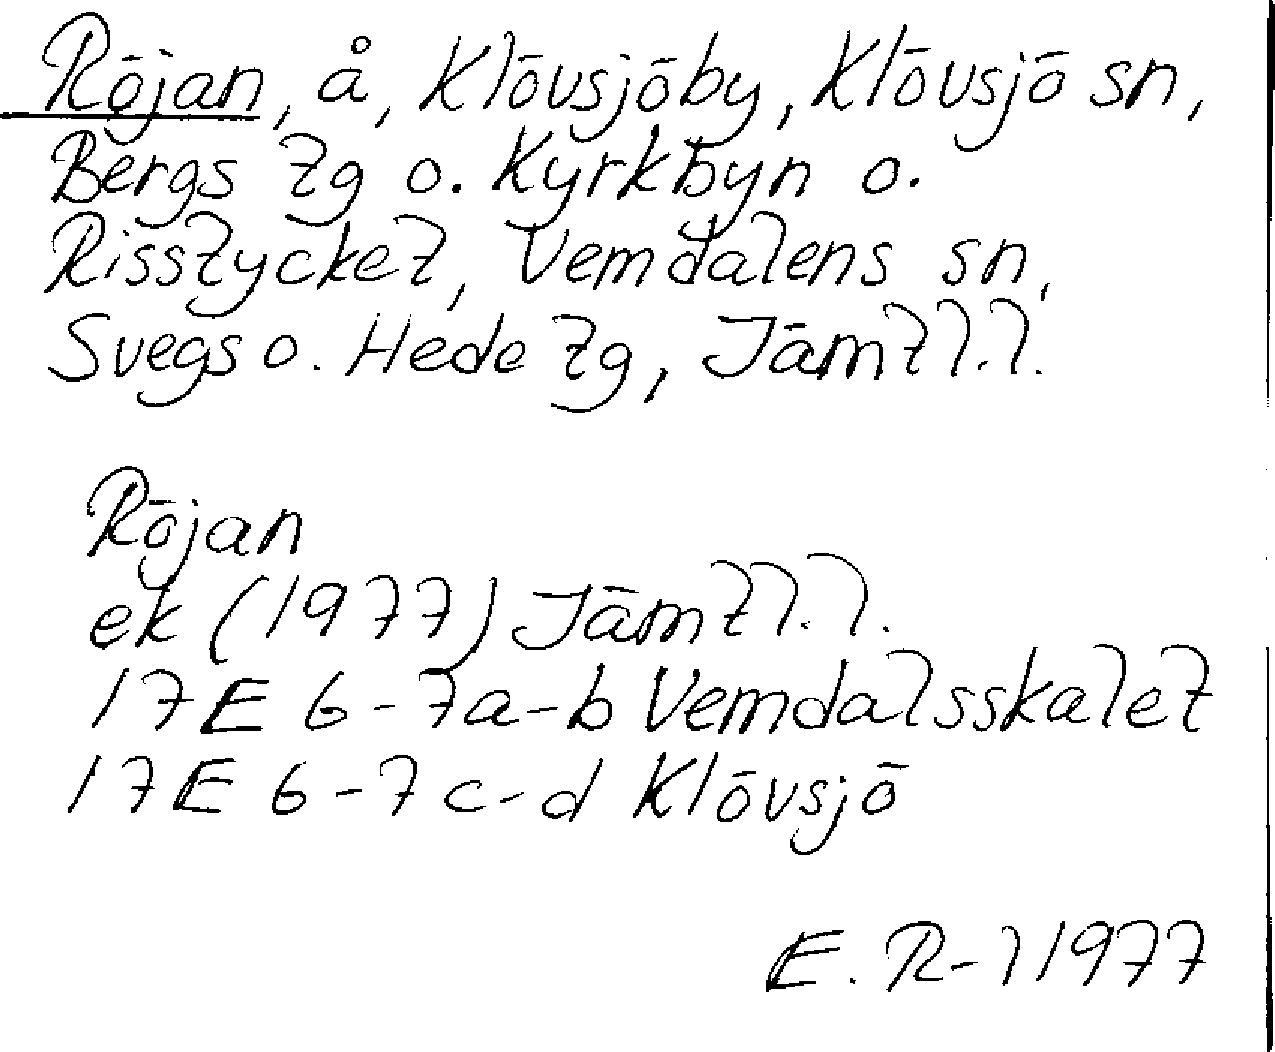 Röjan, å, Klövsjöby, Klövsjö sn,
Bergs tg o. Kyrkbyn o.
Risstycket, Vemdalens sn,
Svegs o. Hede tg, Jämtl.l.
Röjan
ek (1977) Jämtl.l.
17E 6-7a-b Vemdalsskalet
17E 6-7c-d Klövsjö
E. R-l 1977